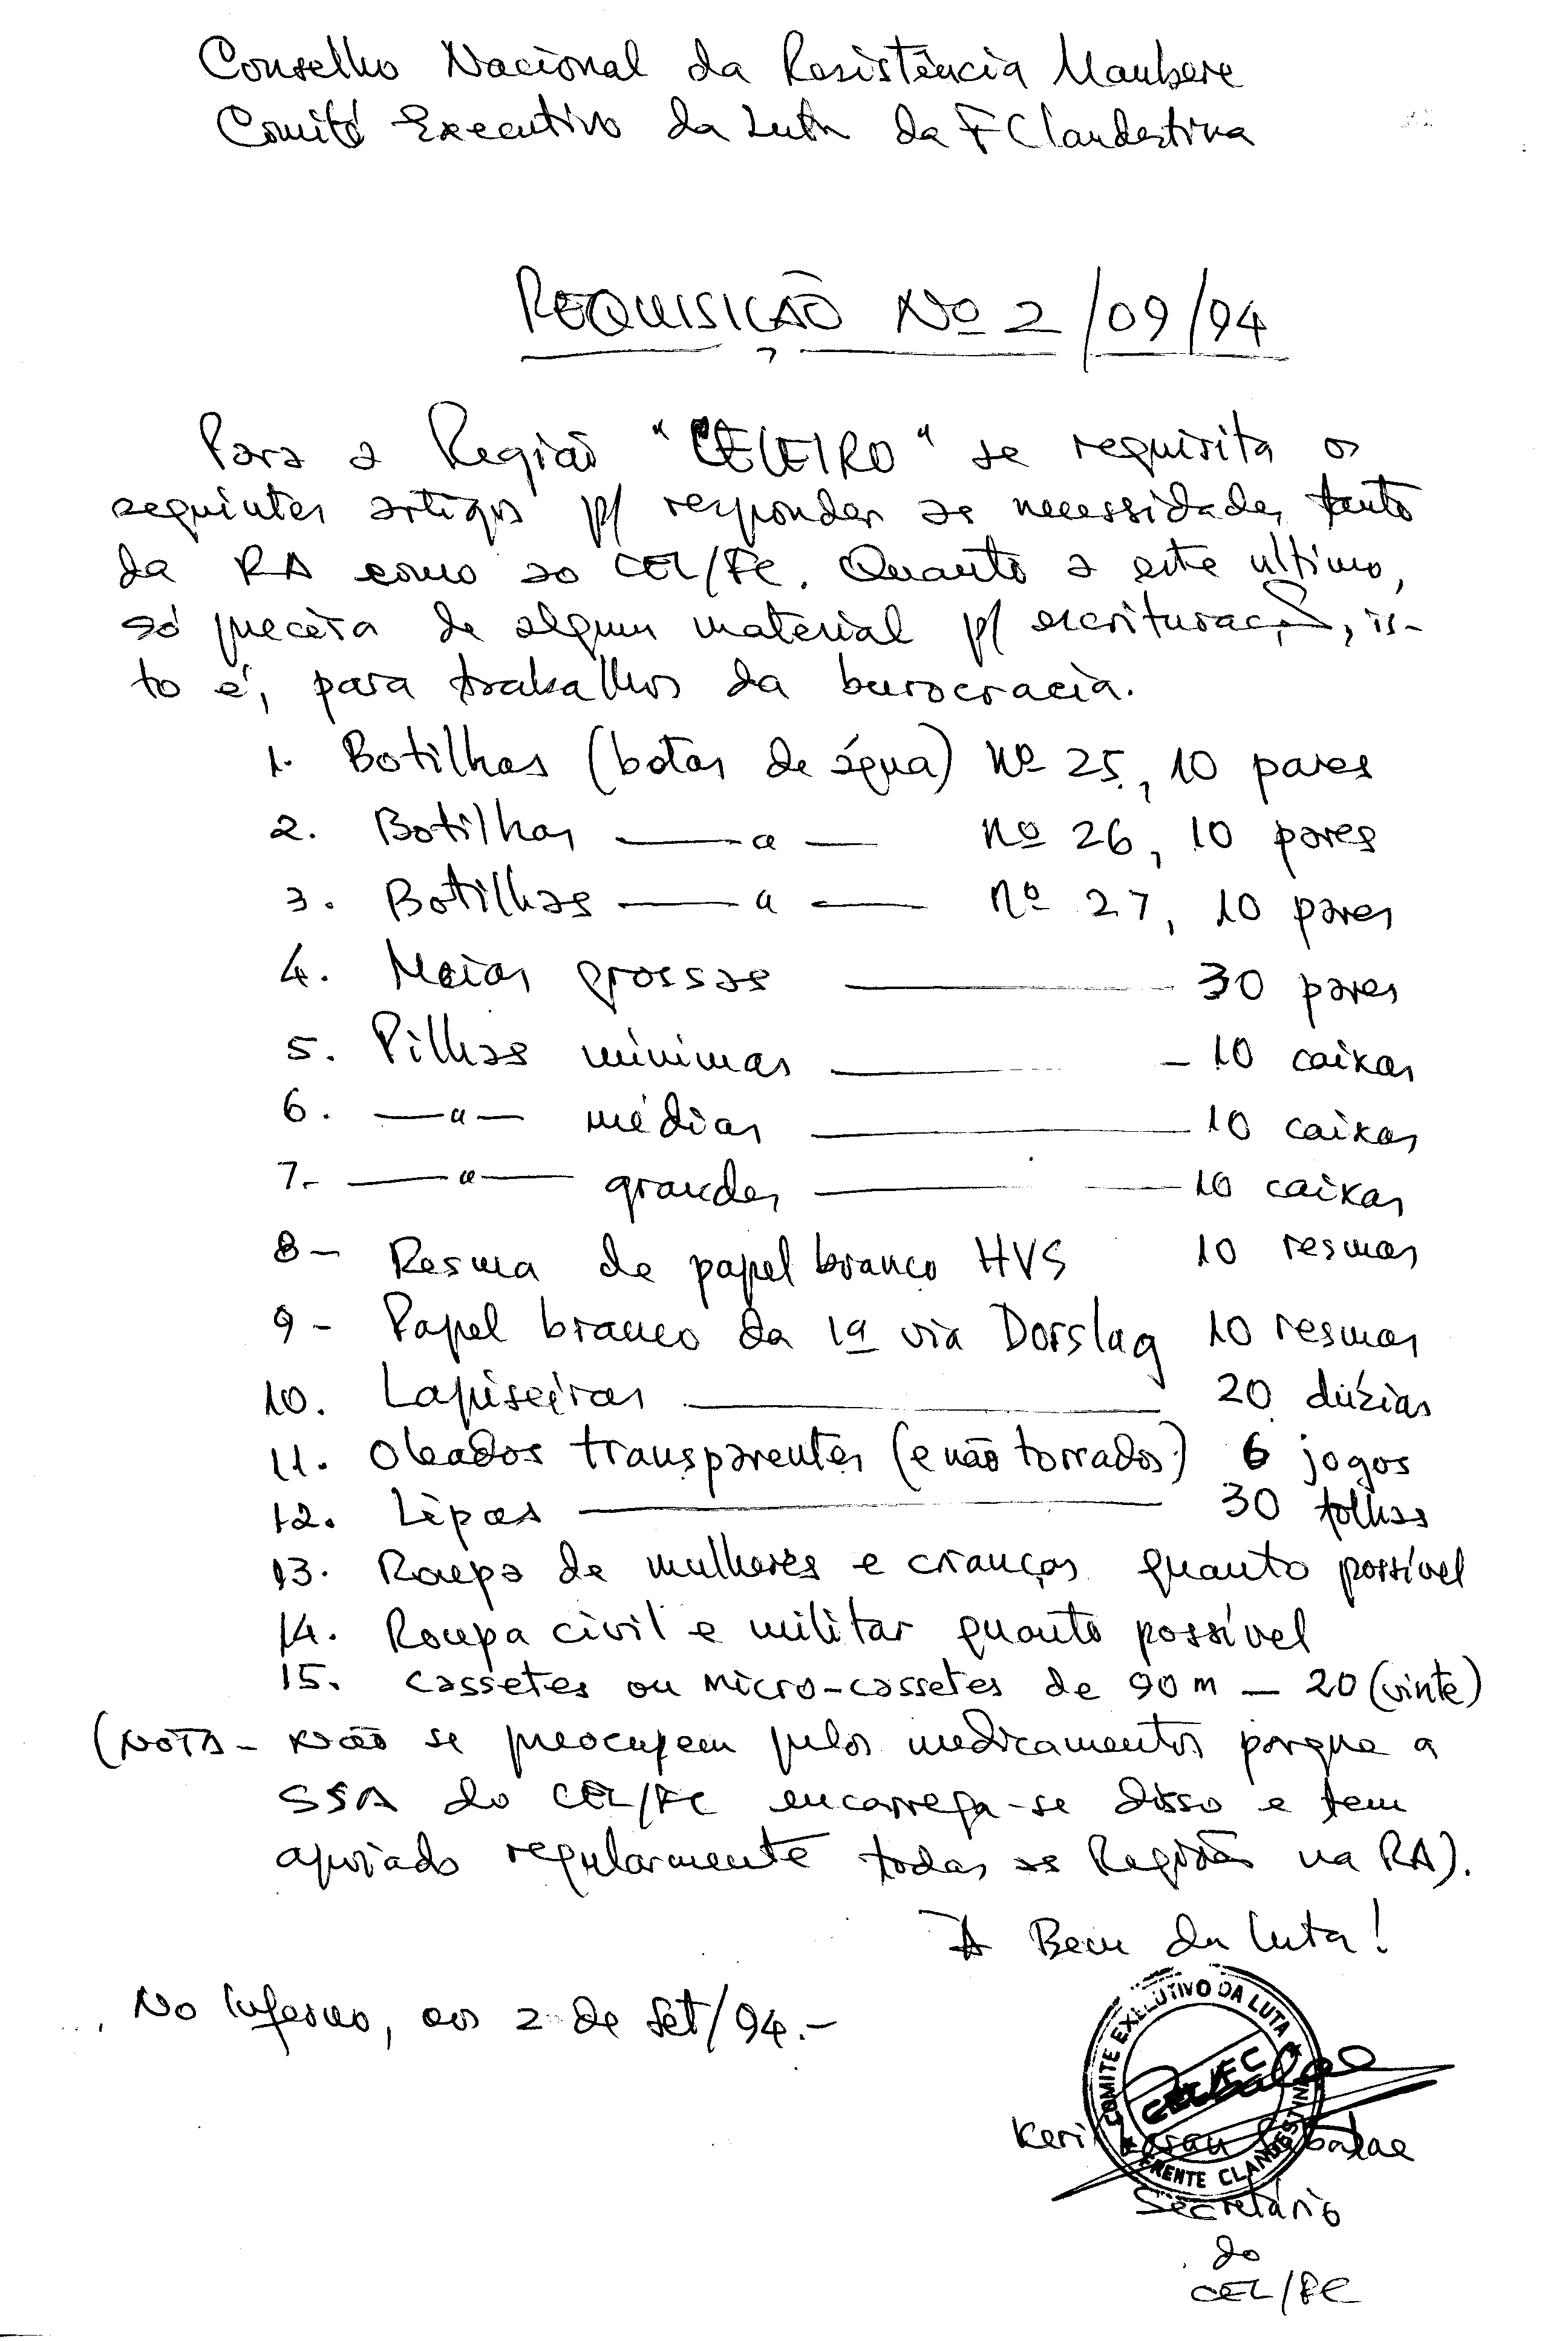 Conselho Nacional da Resistência Maubere
Comité Executivo da Luta da F Clandestina
REQUISIÇÃO Nº 2/09/94
Para a Região "CELEIRO" se requisita os
seguintes artigos p/ responder as necessidades tanto
da RA como ao CEL/FC. Quanto a este ultimo,
só precisa de algum material p/ escrituração, is-
to é, para trabalhos da burocracia.
1. Botilhas (botas de água) nº 25, 10 pares
2. Botilhas —— " — nº 26, 10 pares
3. Botilhas —— " —— nº 27, 10 pares
4. Meias grossas ——— 30 pares
5. Pilhas mínimas ——— 10 caixas
6. — " — médias ——— 10 caixas
7- —— " —— grandes ——— 10 caixas
8- Resma de papel branco HVS 10 resmas
9- Papel branco da 1ª via Dorslag 10 resmas
10. Lapiseiras ——— 20 dúzias
11. Oleados transparentes (e não torrados) 6 jogos
12. Lipas ——— 30 folhas
13. Roupa de mulheres e crianças quanto possível
14. Roupa civil e militar quanto possível
15. Cassetes ou micro-cassetes de 90 m — 20 (vinte)
(NOTA - Não se preocupem pelos medicamentos porque a
SSA do CEL/FC encarrega-se disso e tem
apoiado regularmente todas as Regiões na RA).
A Bem da Luta!
No Inferno, aos 2 de Set/94.-
COMITE EXECUTIVO DA LUTA
CEL/FC
FRENTE CLANDESTINA
Keri Laran Sabalae
Secretário
do
CEL/FC